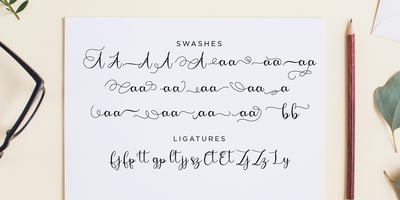 SWASHES
A A A A A aa aa ap
aa aa aa a
aa aa aa aa bb
LIGATURES
fj fp tt gp lt jj sz Ct Et Zj Zz Ly